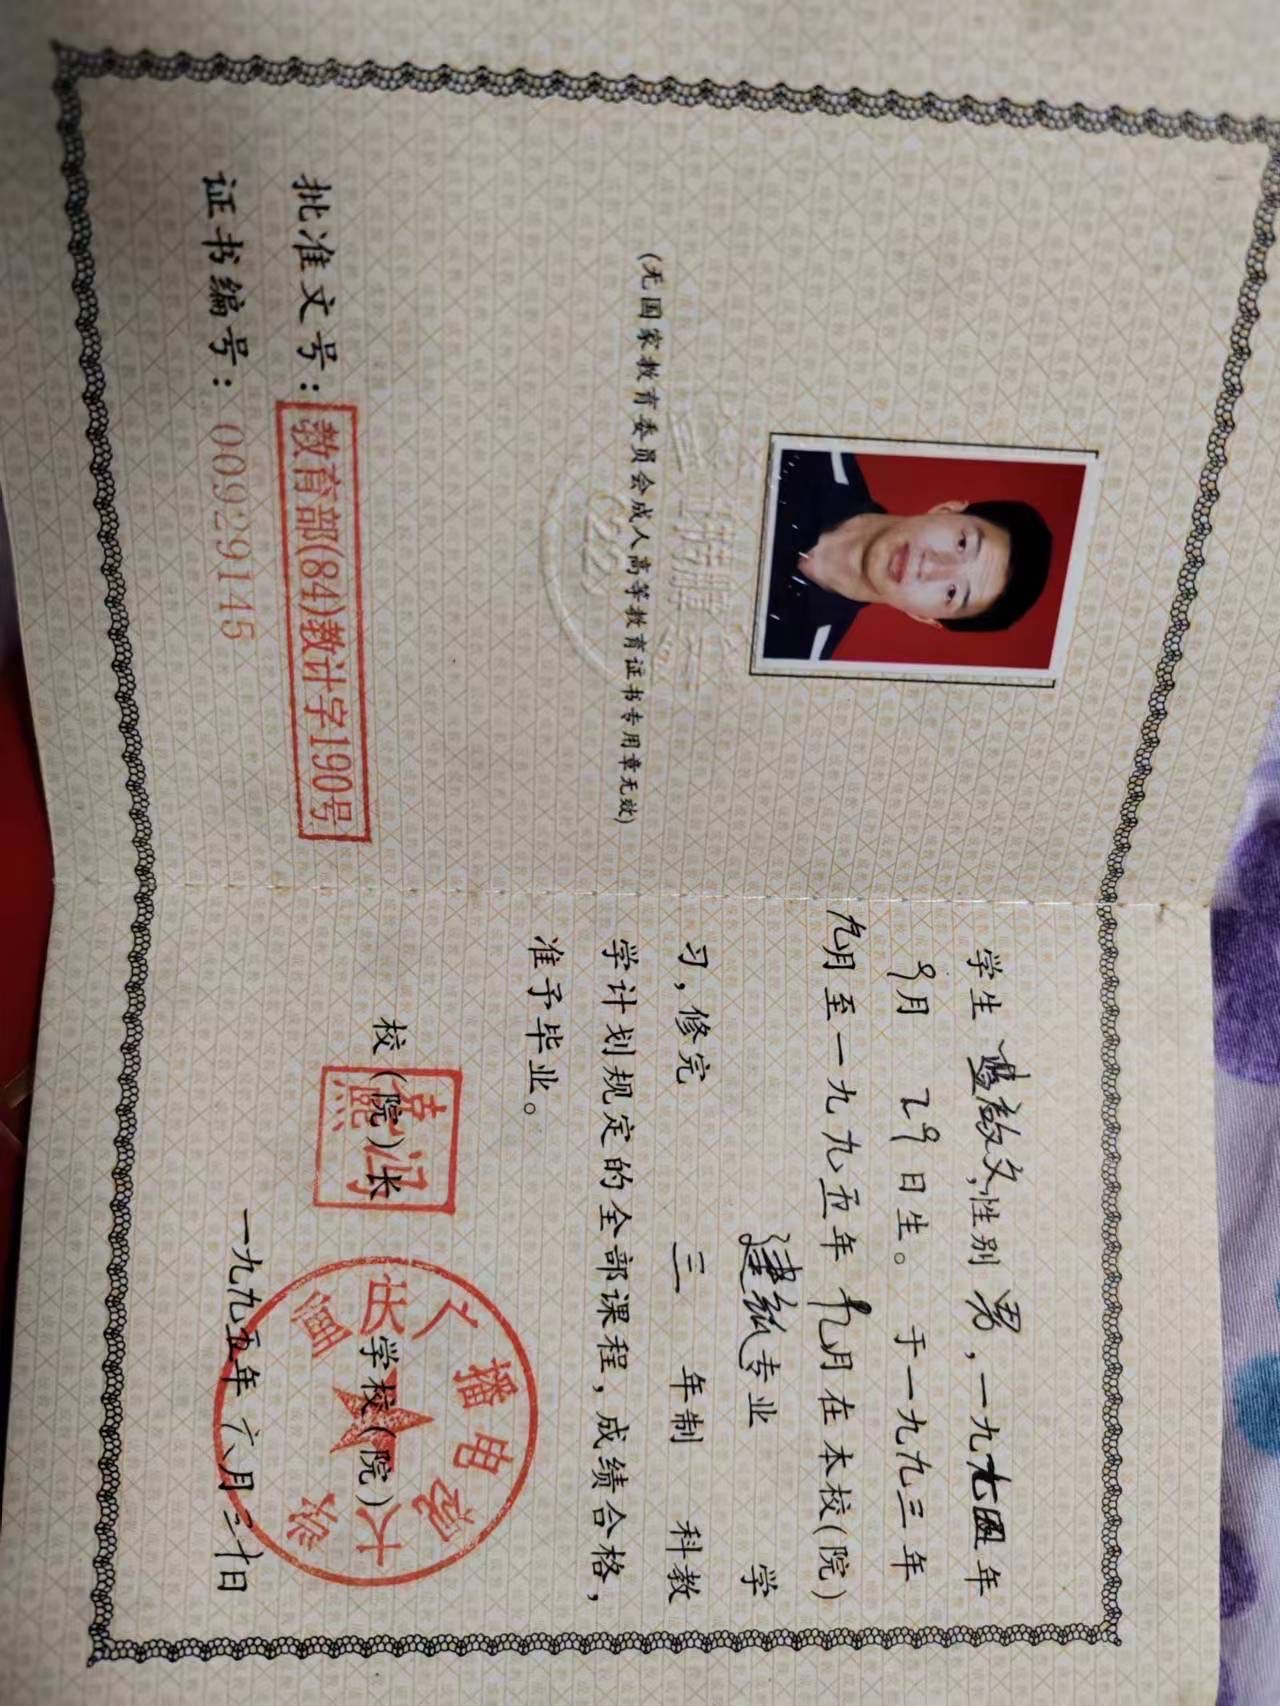 (无国家教育委员会成人高等教育证书专用章无效)
批准文号：教育部(84)教计字190号
证书编号：00929145
学生 启文，性别 男，一九七四年
9月 29日生。 于一九九三年
九月至一九九五年 月在本校(院)
建 专业 学
习，修完 三 年制 科教
学计划规定的全部课程，成绩合格，
准予毕业。
校(院)长
学校(院)
重庆广播电视大学
一九九五年六月三十日